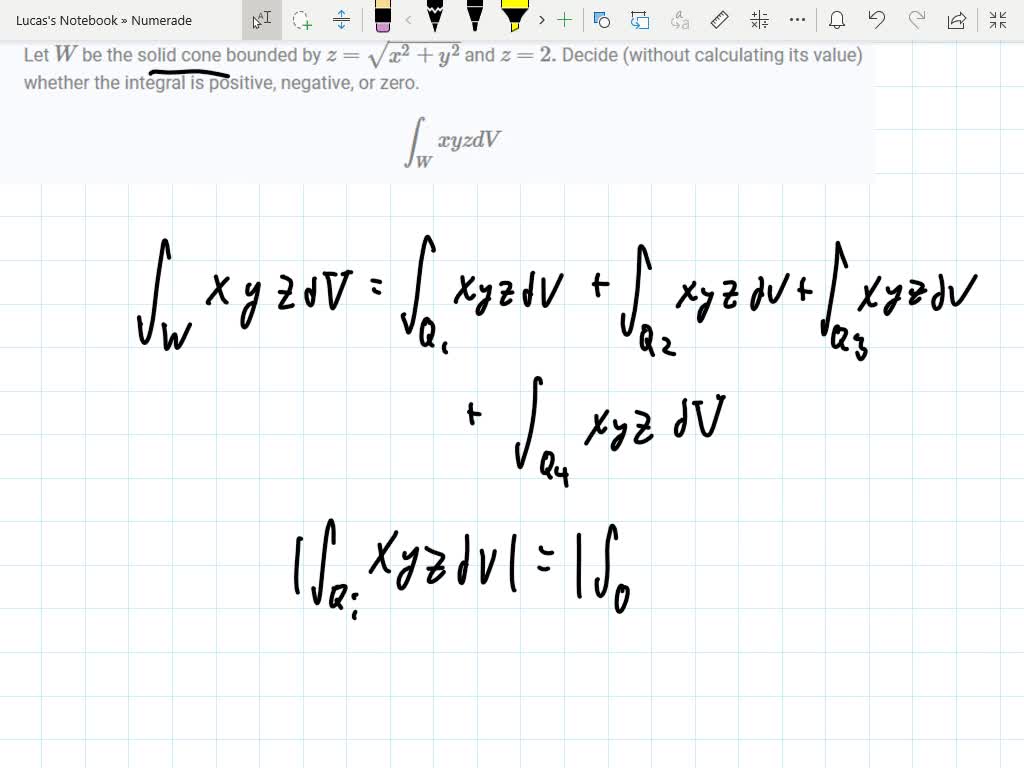 Lucas's Notebook » Numerade
Let W be the solid cone bounded by z = √x² + y² and z = 2. Decide (without calculating its value)
whether the integral is positive, negative, or zero.
∫_W xyzdV
∫_W xyzdV = ∫_Q₁ xyzdV + ∫_Q₂ xyzdV + ∫_Q₃ xyzdV
+ ∫_Q₄ xyz dV
|∫_Qᵢ xyzdV| = |∫_0